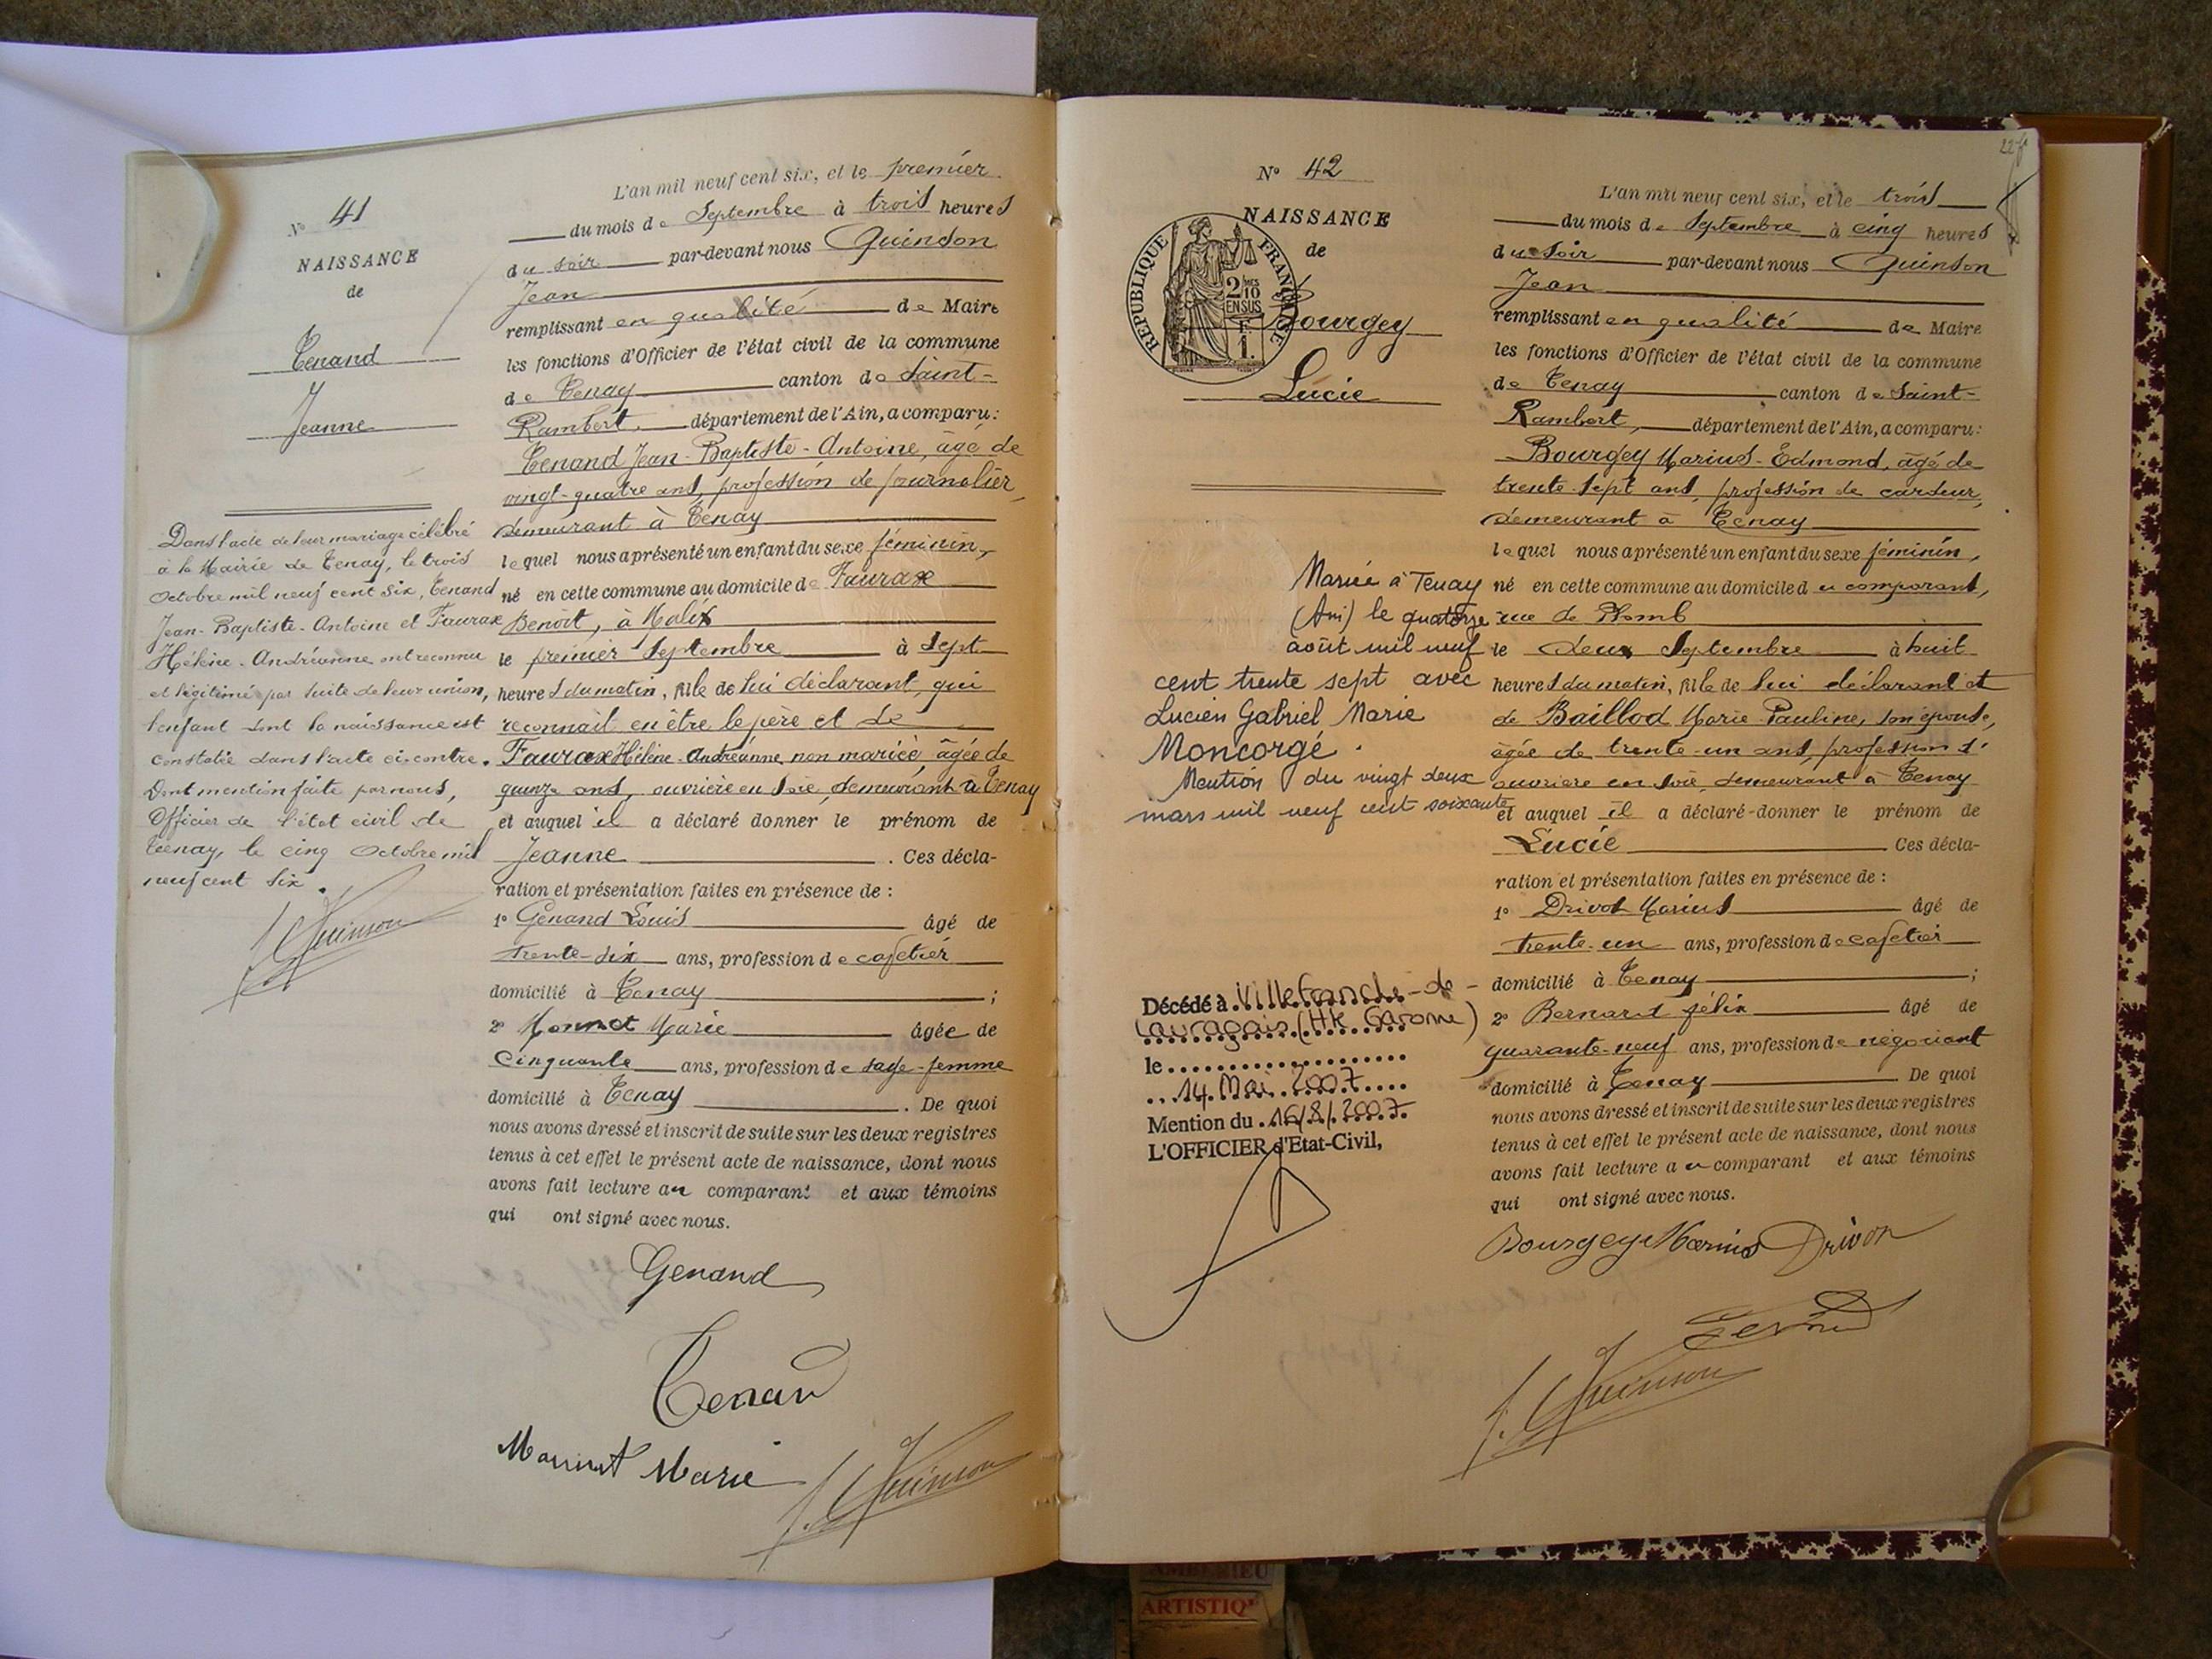 N° 41
NAISSANCE
de
Tenand
Jeanne
Dans l'acte de leur mariage célébré
à la Mairie de Tenay, le trois
octobre mil neuf cent six, Tenand
Jean-Baptiste-Antoine et Faurax
Hélène-Andréanne ont reconnu
et légitimé par suite de leur union,
l'enfant dont la naissance est
constatée dans l'acte ci-contre.
Dont mention faite par nous,
Officier de l'état civil de
Tenay, le cinq octobre mil
neuf cent six.
J. Quinson
L'an mil neuf cent six, et le premier
du mois de Septembre à trois heures
du soir par-devant nous Quinson
Jean
remplissant en qualité de Maire
les fonctions d'Officier de l'état civil de la commune
de Tenay canton de Saint-
Rambert, département de l'Ain, a comparu:
Tenand Jean-Baptiste-Antoine, âgé de
vingt-quatre ans, profession de journalier,
demeurant à Tenay
lequel nous a présenté un enfant du sexe féminin,
né en cette commune au domicile de Faurax
Benoît, à Malix
le premier Septembre à sept
heures du matin, fille de lui déclarant, qui
reconnaît en être le père et de
Faurax Hélène-Andréanne, non mariée, âgée de
quinze ans, ouvrière en soie, demeurant à Tenay
et auquel il a déclaré donner le prénom de
Jeanne. Ces décla-
ration et présentation faites en présence de :
1° Genand Louis âgé de
trente-six ans, profession de cafetier
domicilié à Tenay ;
2° Monnet Marie âgée de
cinquante ans, profession de sage-femme
domicilié à Tenay. De quoi
nous avons dressé et inscrit de suite sur les deux registres
tenus à cet effet le présent acte de naissance, dont nous
avons fait lecture au comparant et aux témoins
qui ont signé avec nous.
Genand
Tenand
Monnet Marie J. Quinson
N° 42
NAISSANCE
de
REPUBLIQUE FRANÇAISE
2/10 EN SUS
1 F.
Bourgey
Lucie
Mariée à Tenay
(Ain) le quatorze
août mil neuf
cent trente sept avec
Lucien Gabriel Marie
Moncorgé.
Mention du vingt deux
mars mil neuf cent soixante
Décédé à Villefranche-de-
Lauragais (Hte Garonne)
le
14 Mai 2007
Mention du 16/8/2007
L'OFFICIER d'Etat-Civil,
L'an mil neuf cent six, et le trois
du mois de Septembre à cinq heures
du soir par-devant nous Quinson
Jean
remplissant en qualité de Maire
les fonctions d'Officier de l'état civil de la commune
de Tenay canton de Saint-
Rambert, département de l'Ain, a comparu:
Bourgey Marius-Edmond, âgé de
trente-sept ans, profession de cardeur,
demeurant à Tenay
lequel nous a présenté un enfant du sexe féminin,
né en cette commune au domicile du comparant,
rue de Plomb
le deux Septembre à huit
heures du matin, fille de lui déclarant et
de Baillod Marie-Pauline, son épouse,
âgée de trente-un ans, profession d'
ouvrière en soie, demeurant à Tenay
et auquel il a déclaré donner le prénom de
Lucie Ces décla-
ration et présentation faites en présence de :
1° Drivot Marius âgé de
trente-un ans, profession de cafetier
domicilié à Tenay ;
2° Bernard félix âgé de
quarante-neuf ans, profession de négociant
domicilié à Tenay. De quoi
nous avons dressé et inscrit de suite sur les deux registres
tenus à cet effet le présent acte de naissance, dont nous
avons fait lecture au comparant et aux témoins
qui ont signé avec nous.
Bourgey Marius Drivon
J. Quinson
ARTISTIQ